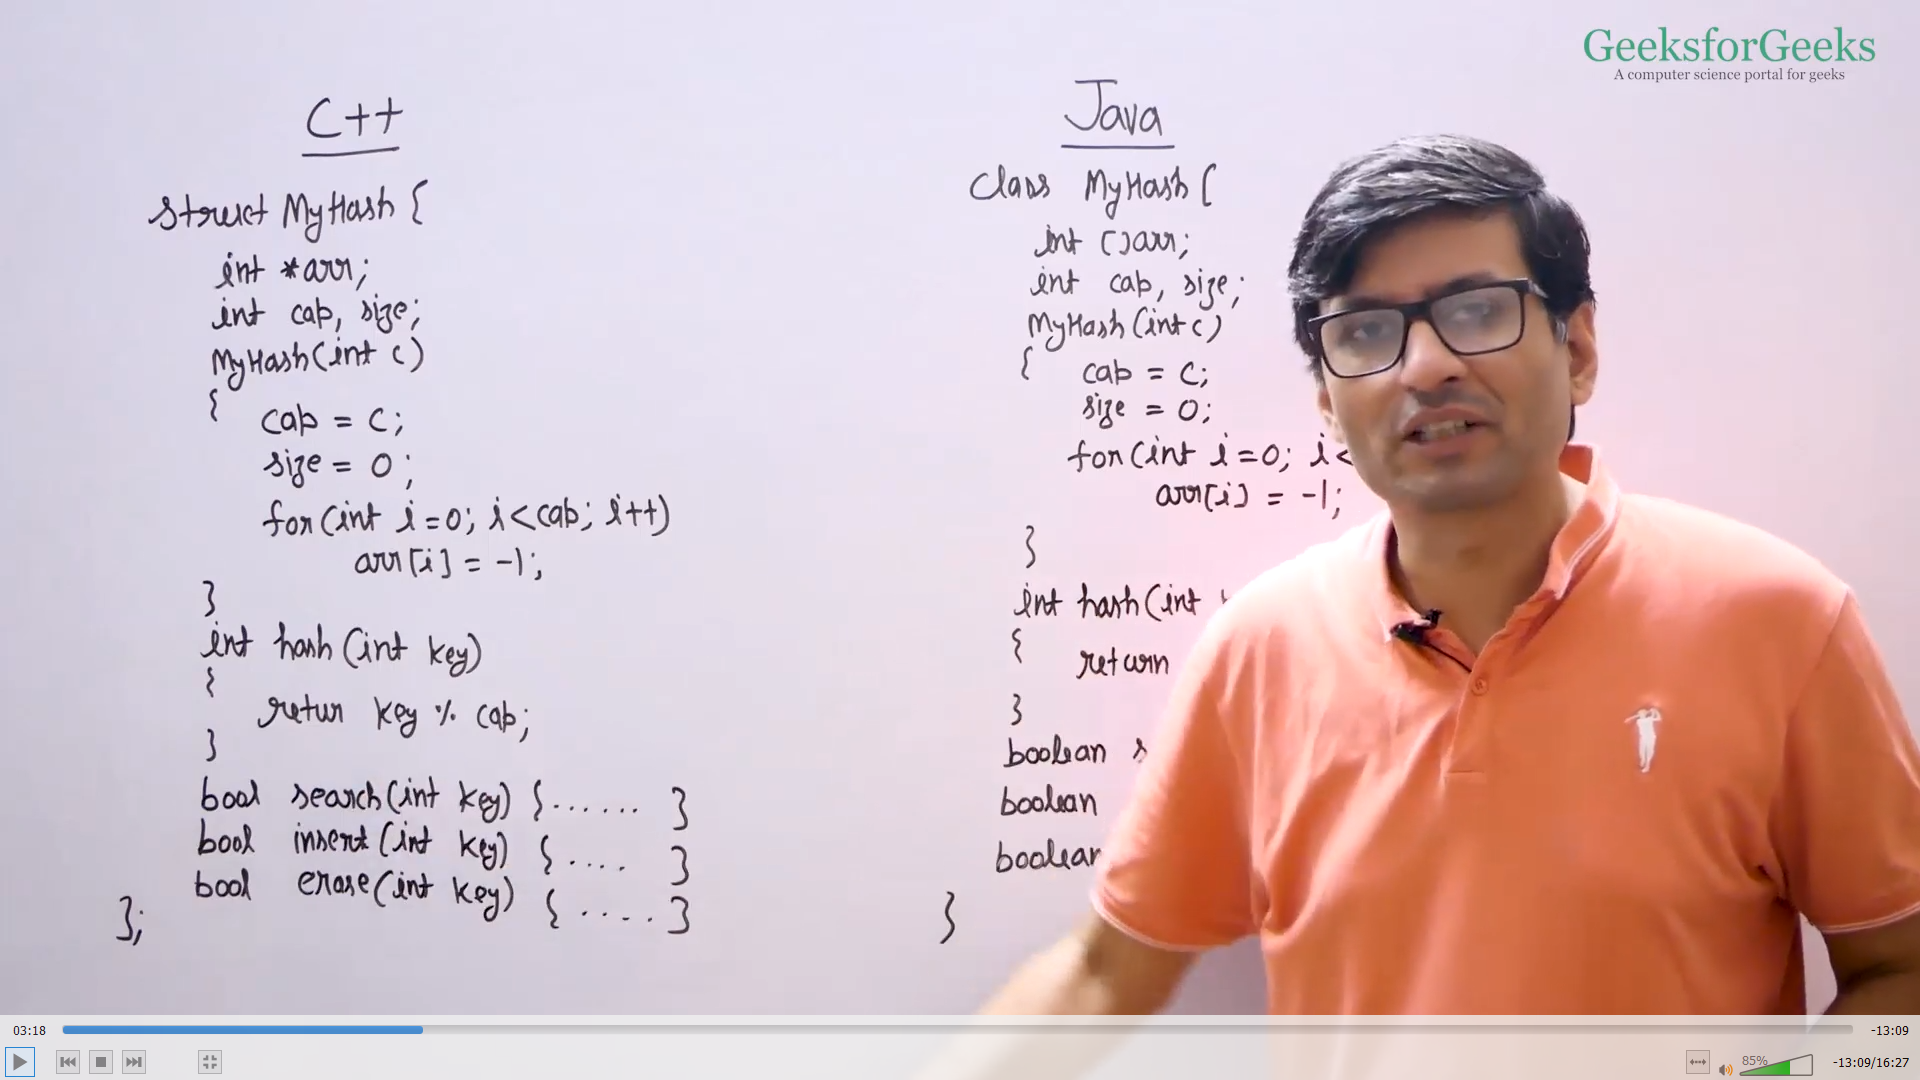 GeeksforGeeks
A computer science portal for geeks
C++
struct MyHash {
int *arr;
int cap, size;
MyHash(int c)
{ cap = c;
size = 0;
for(int i=0; i<cap; i++)
arr[i] = -1;
}
int hash(int key)
{
retur key % cap;
}
bool search(int key) {...... }
bool insert(int key) {.... }
bool erase(int key) {.... }
};
Java
class MyHash {
int []arr;
int cap, size;
MyHash(int c)
{ cap = c;
size = 0;
for(int i=0; i<
arr[i] = -1;
}
int hash(int
{ return
}
boolean s
boolean
boolean
}
03:18
-13:09
85%
-13:09/16:27